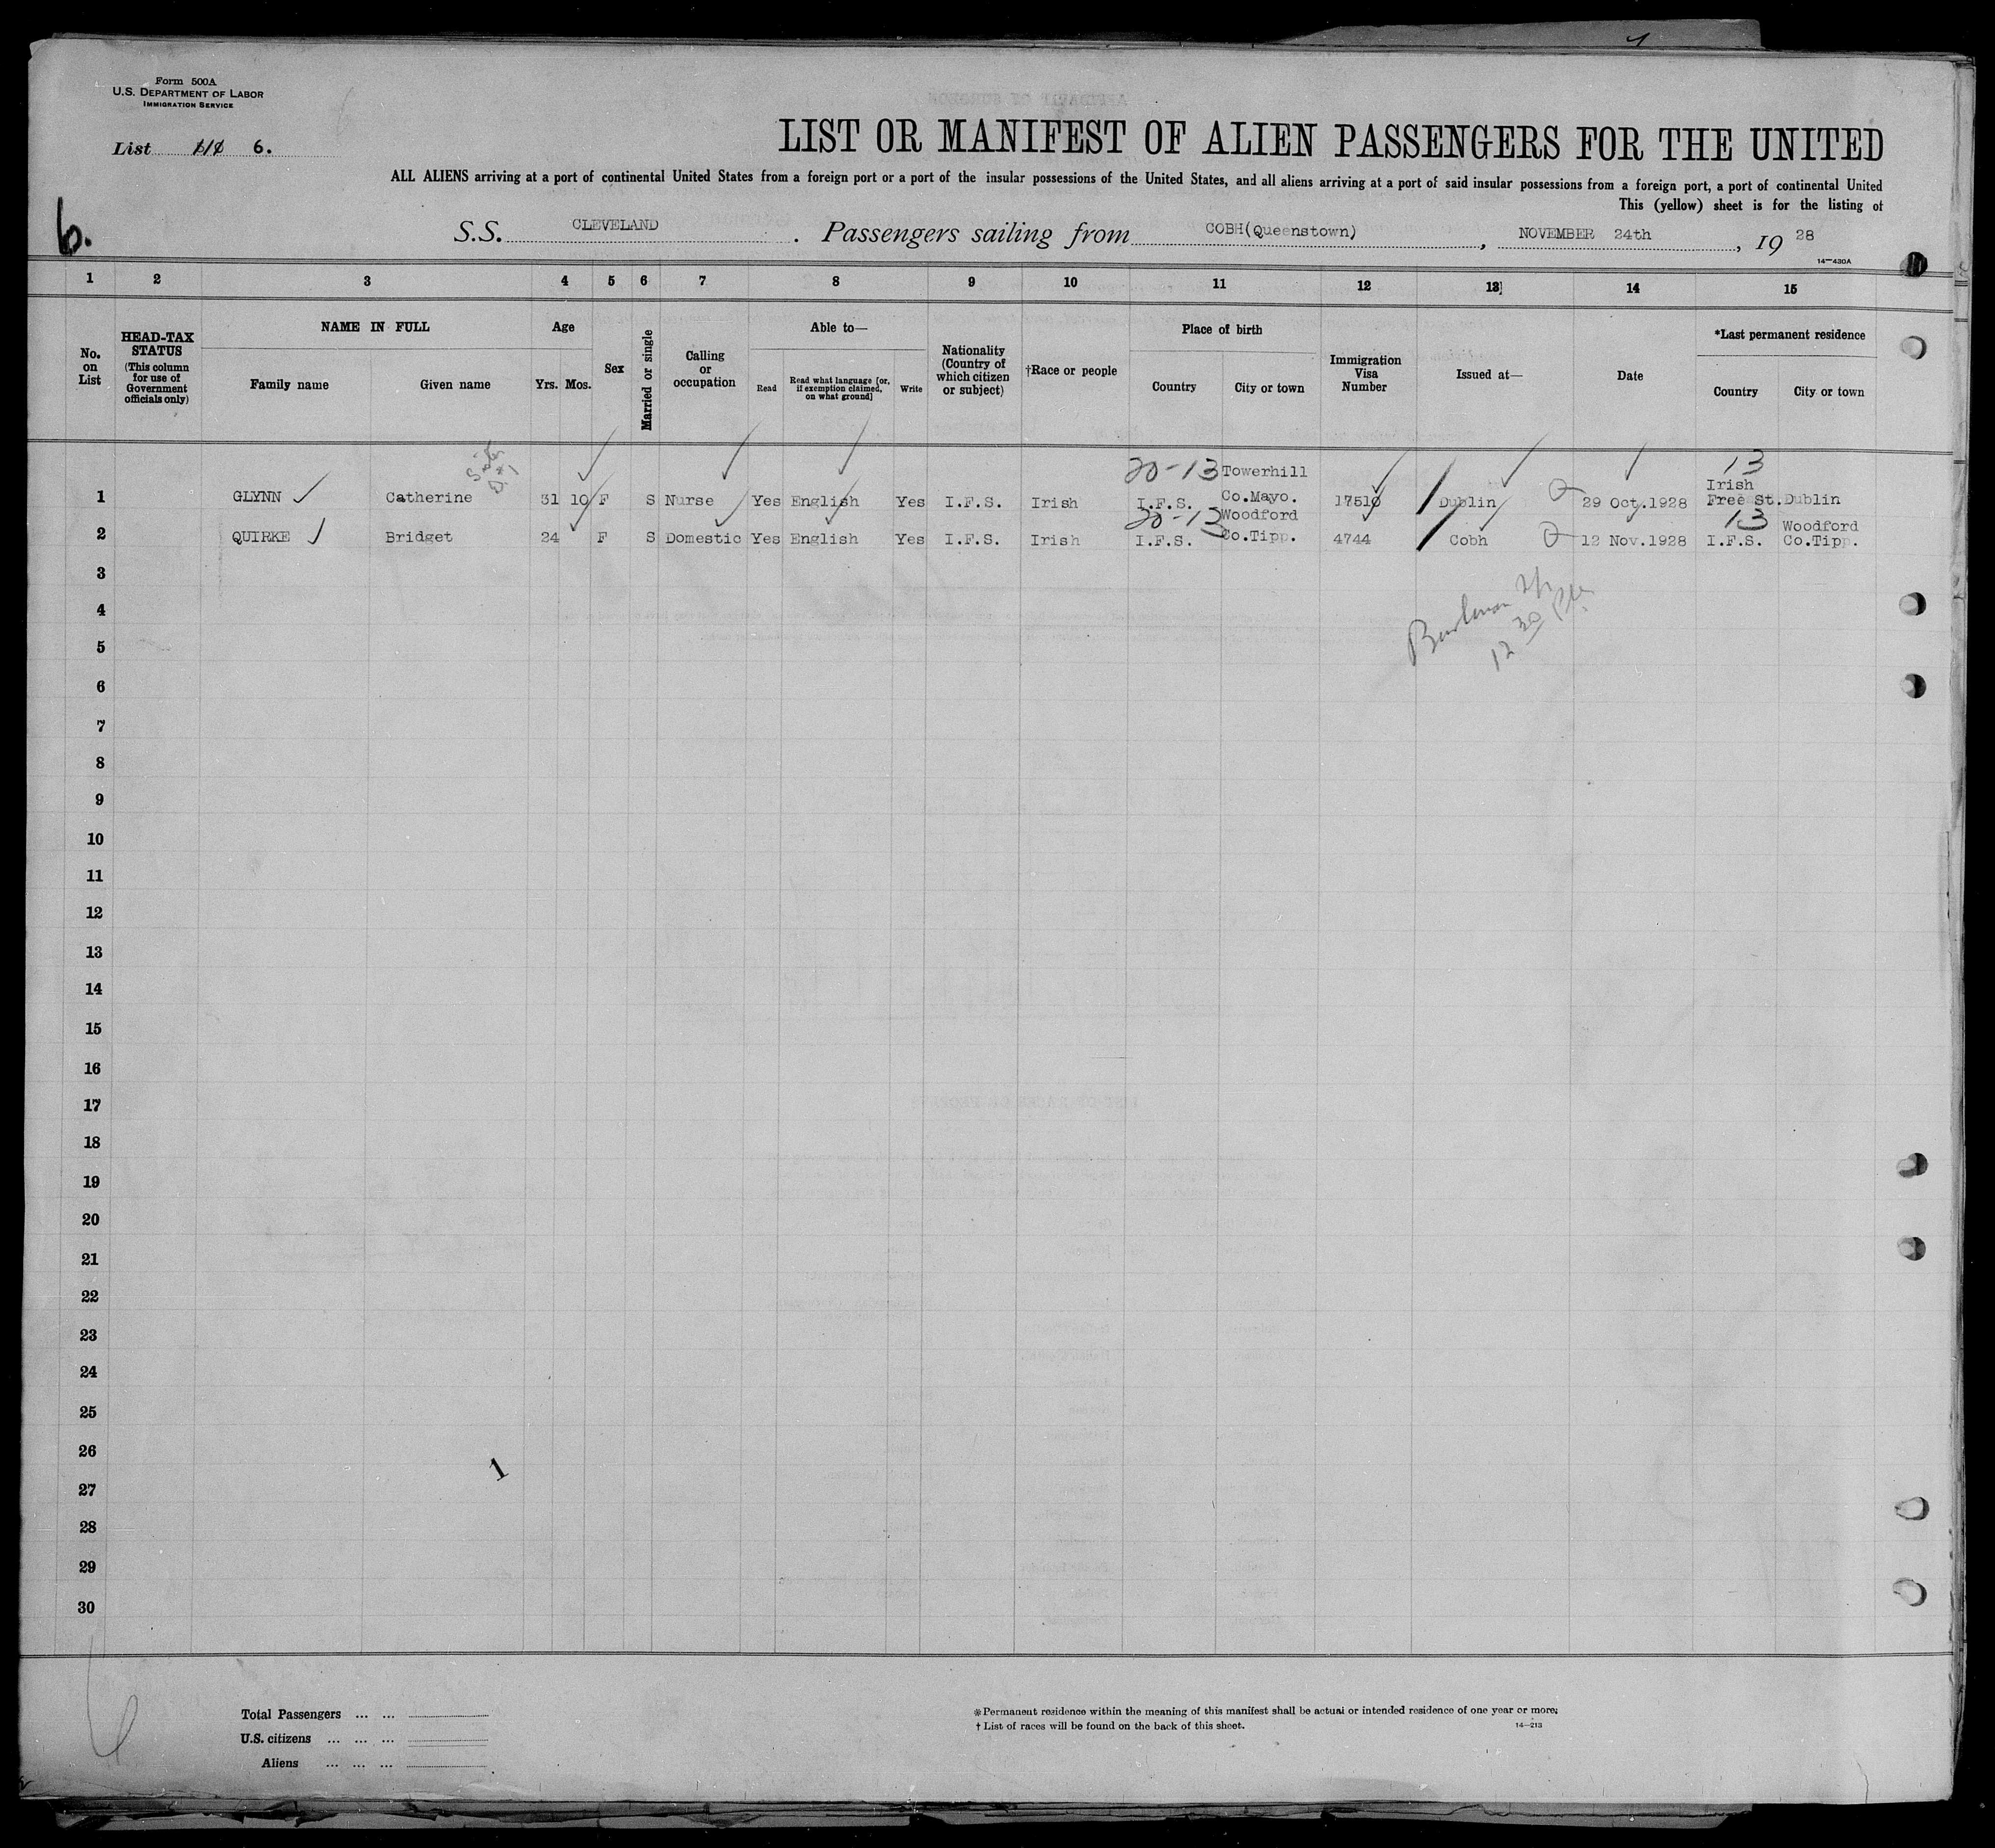 Form 500A
U.S. DEPARTMENT OF LABOR
IMMIGRATION SERVICE
List 6.
6.
LIST OR MANIFEST OF ALIEN PASSENGERS FOR THE UNITED
ALL ALIENS arriving at a port of continental United States from a foreign port or a port of the insular possessions of the United States, and all aliens arriving at a port of said insular possessions from a foreign port, a port of continental United
This (yellow) sheet is for the listing of
S.S. CLEVELAND . Passengers sailing from COBH(Queenstown) , NOVEMBER 24th , 19 28
14—430A
1 2 3 4 5 6 7 8 9 10 11 12 13 14 15
No. on List
HEAD-TAX STATUS (This column for use of Government officials only)
NAME IN FULL
Family name Given name
Age
Yrs. Mos.
Sex
Married or single
Calling or occupation
Able to—
Read
Read what language [or, if exemption claimed, on what ground]
Write
Nationality (Country of which citizen or subject)
†Race or people
Place of birth
Country City or town
Immigration Visa Number
Issued at—
Date
*Last permanent residence
Country City or town
20-13 Towerhill 13
Irish
1 GLYNN Catherine 31 10 F S Nurse Yes English Yes I.F.S. Irish I.F.S. Co.Mayo. 17510 Dublin 29 Oct.1928 Free St. Dublin
20-13 Woodford 13 Woodford
2 QUIRKE Bridget 24 F S Domestic Yes English Yes I.F.S. Irish I.F.S. Co.Tipp. 4744 Cobh 12 Nov.1928 I.F.S. Co.Tipp.
3
4
5
12 30
6
7
8
9
10
11
12
13
14
15
16
17
18
19
20
21
22
23
24
25
26
1
27
28
29
30
Total Passengers ... ...
U.S. citizens ... ... ...
Aliens ... ... ...
*Permanent residence within the meaning of this manifest shall be actual or intended residence of one year or more.
† List of races will be found on the back of this sheet.
14—213